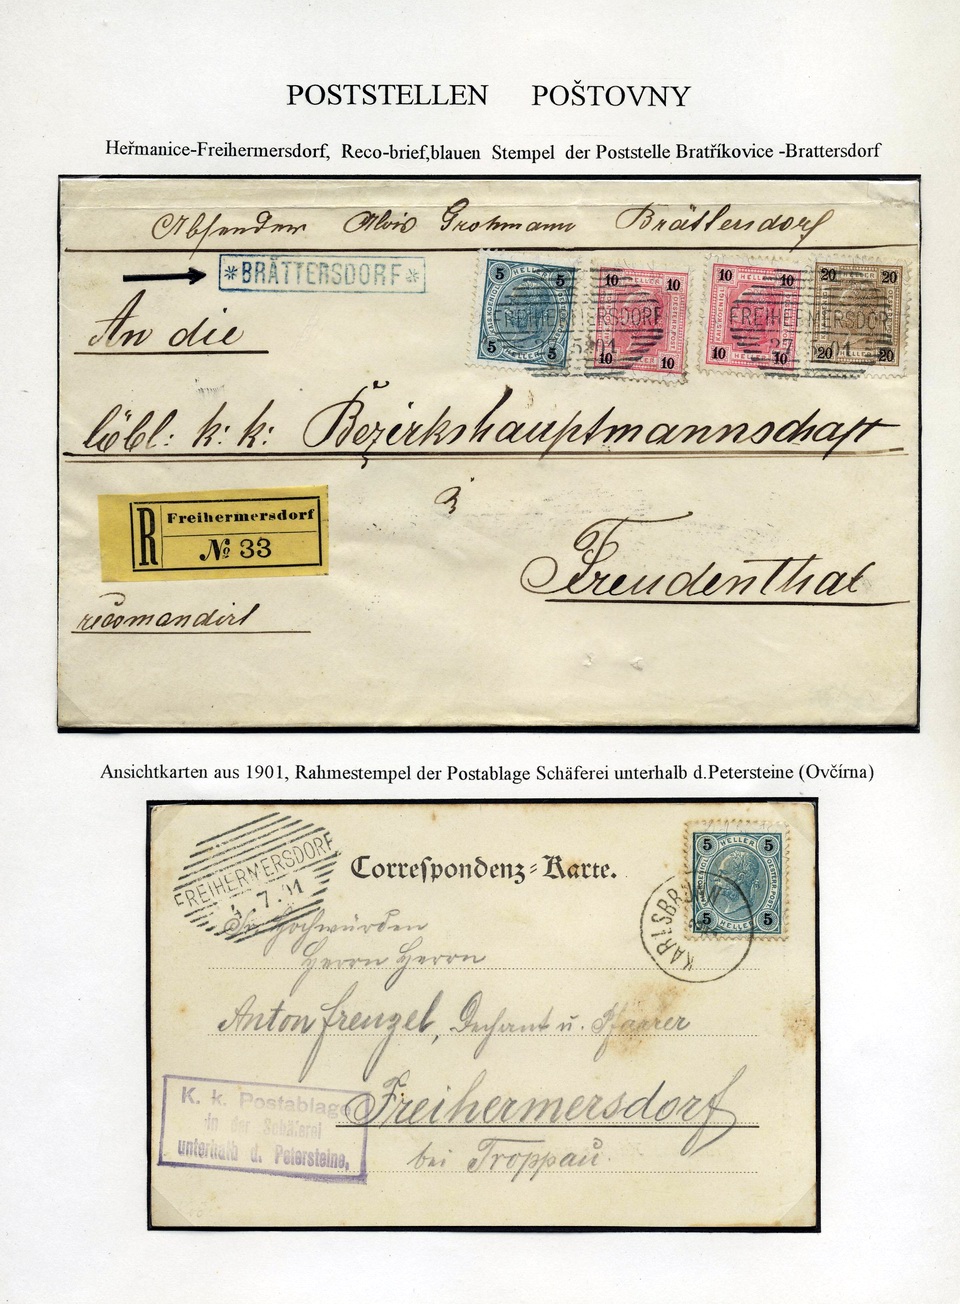 POSTSTELLEN POŠTOVNY
Heřmanice-Freihermersdorf, Reco-brief,blauen Stempel der Poststelle Bratříkovice -Brattersdorf
Absender Alois Grohmann Brättersdorf
*BRÄTTERSDORF*
5 5 5 5 HELLER
10 10 10 10
10 10 10 HELLER
20 20 20 20
FREIHERMERSDORF
FREIHERMERSDOR
An die
löbl: k: k: Bezirkshauptmannschaft
Freudenthal
R Freihermersdorf
№ 33
recomandirt
Ansichtkarten aus 1901, Rahmestempel der Postablage Schäferei unterhalb d.Petersteine (Ovčírna)
FREIHERMERSDORF
4.7.01
Correspondenz-Karte.
5 HELLER 5
5 HELLER 5
KARLSBR
Sr. Hochwürden
Herrn Herrn
Anton Frenzel, Dechant u. Pfarrer
Freihermersdorf
bei Troppau
K. k. Postablage
in der Schäferei
unterhalb d. Petersteine.